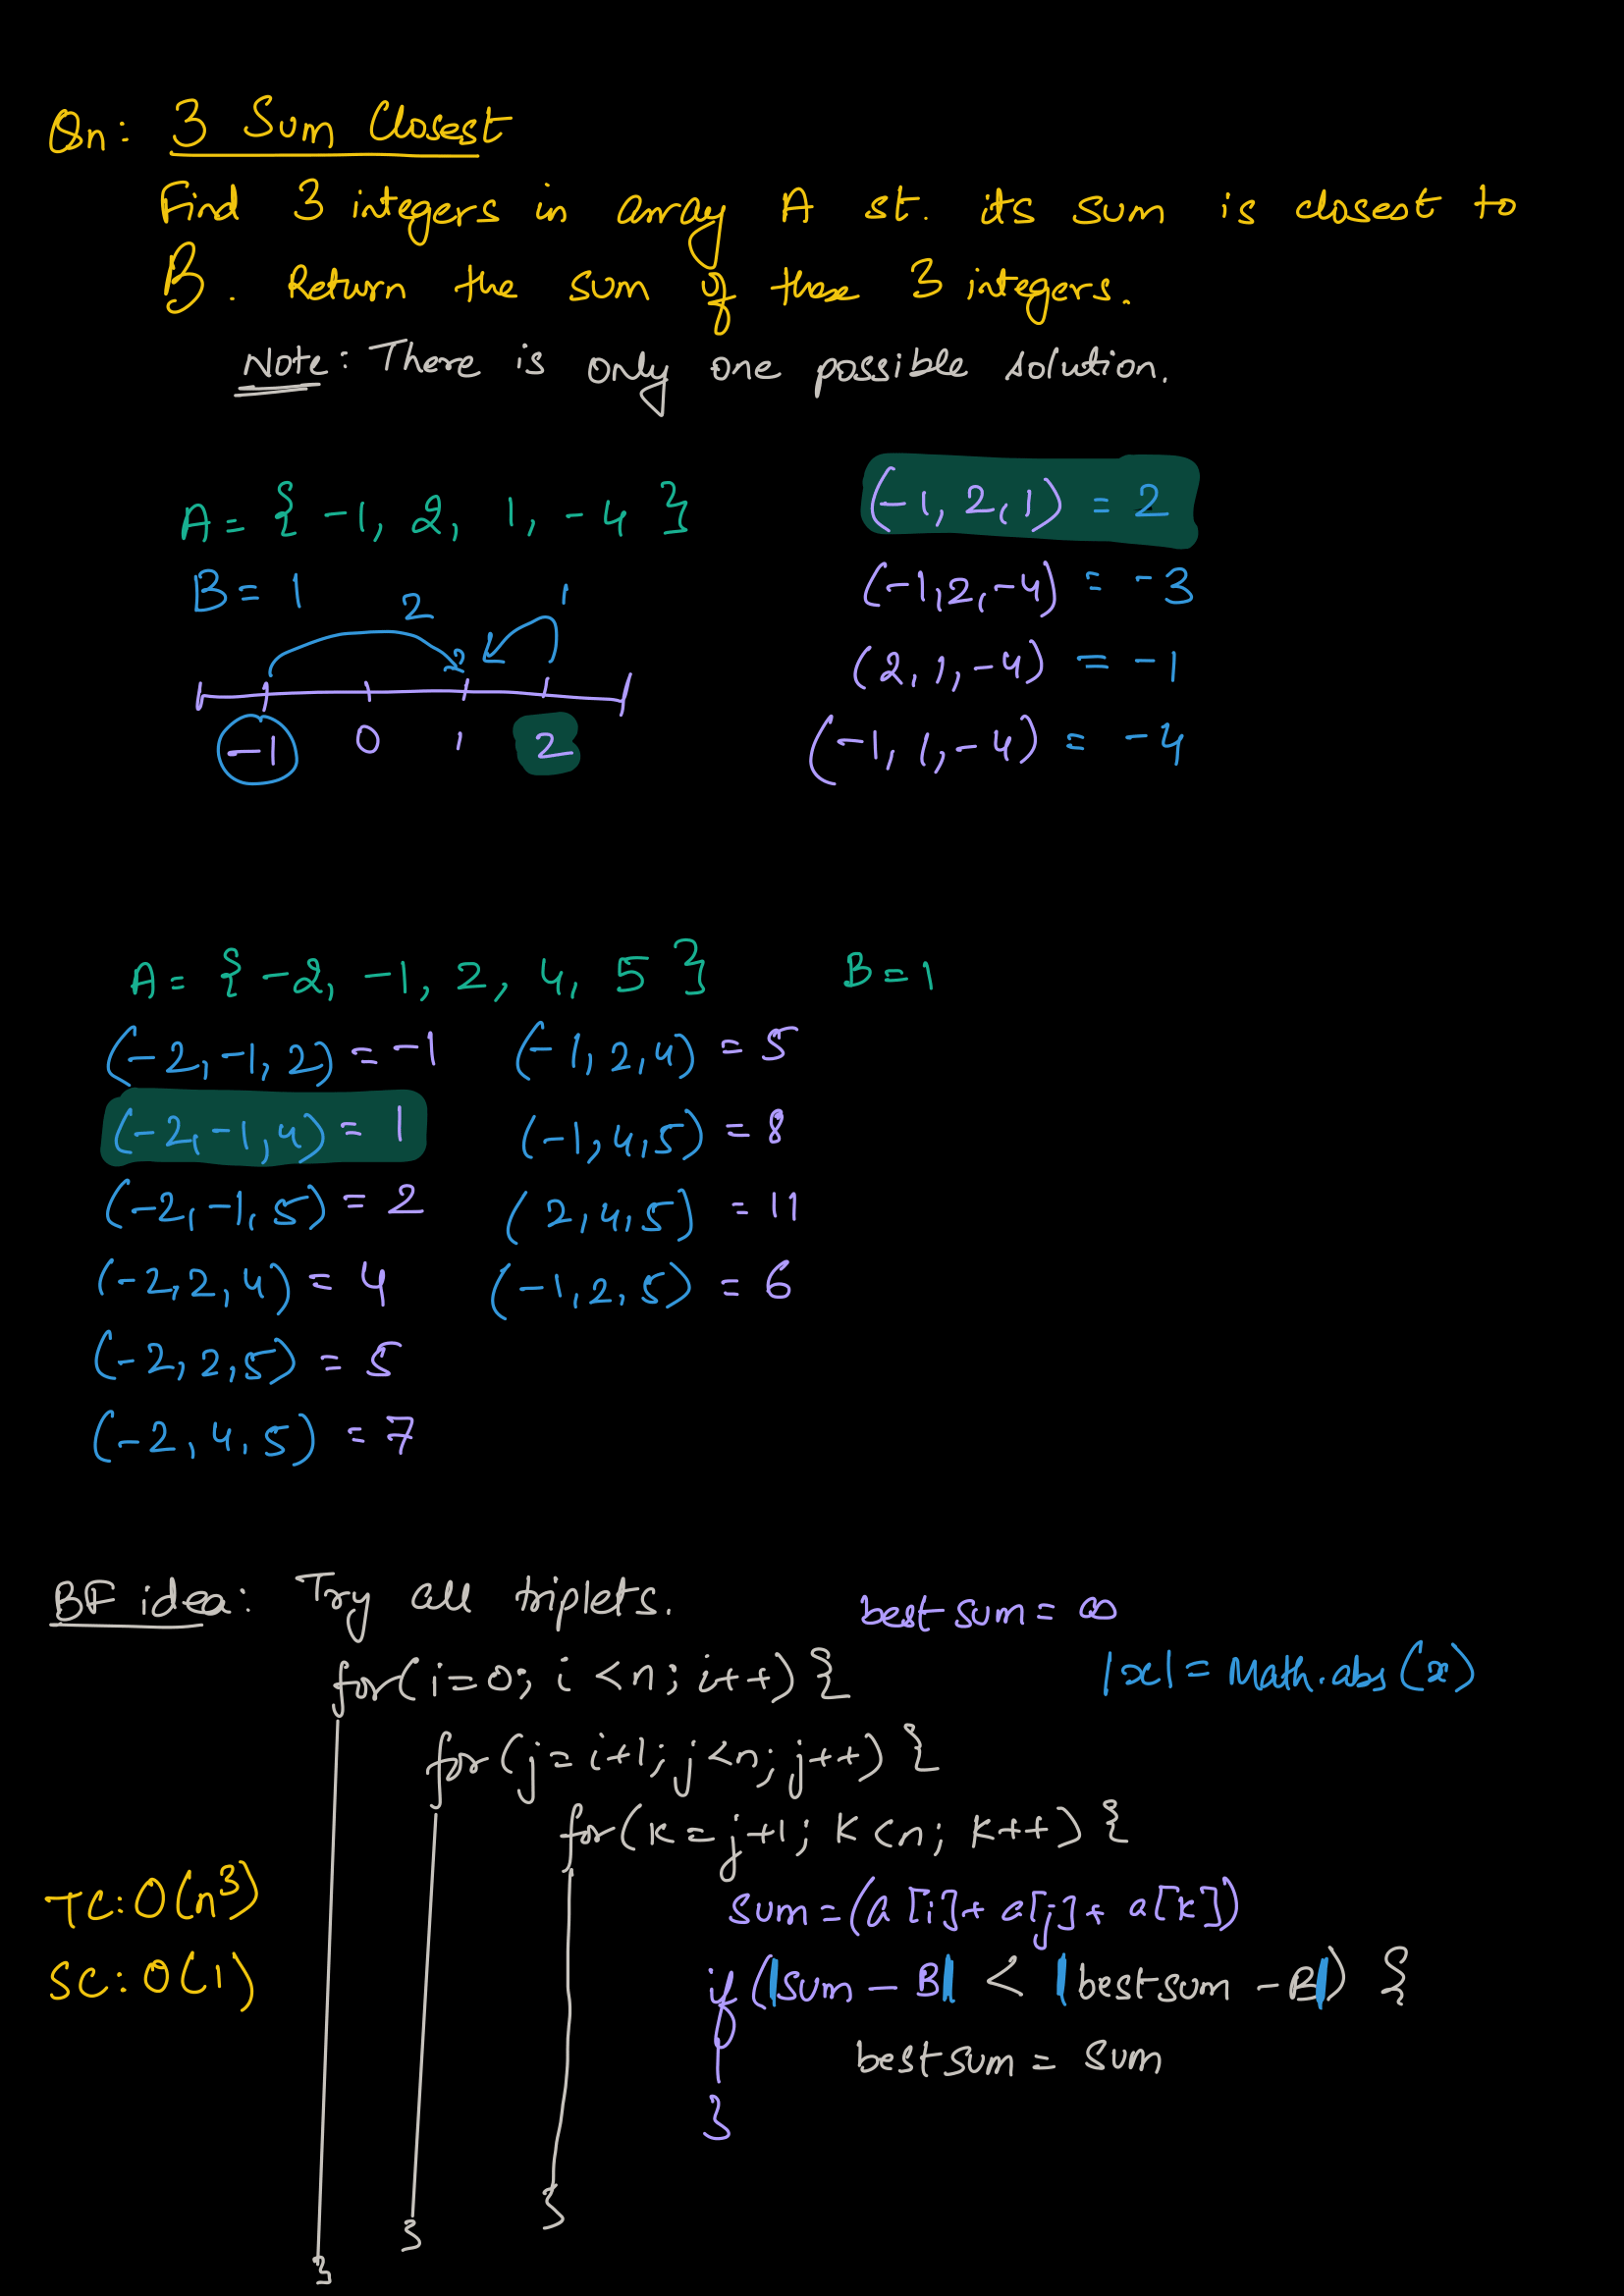 Qn: 3 Sum Closest
Find 3 integers in array A st. its sum is closest to
B. Return the sum of these 3 integers.
Note: There is only one possible solution.
A = { -1, 2, 1, -4 }
B = 1
2
1
2
-1 0 1 2
(-1, 2, 1) = 2
(-1, 2, -4) = -3
(2, 1, -4) = -1
(-1, 1, -4) = -4
A = { -2, -1, 2, 4, 5 } B = 1
(-2, -1, 2) = -1
(-2, -1, 4) = 1
(-2, -1, 5) = 2
(-2, 2, 4) = 4
(-2, 2, 5) = 5
(-2, 4, 5) = 7
(-1, 2, 4) = 5
(-1, 4, 5) = 8
(2, 4, 5) = 11
(-1, 2, 5) = 6
BF idea: Try all triplets.
best sum = ∞
|x| = Math.abs(x)
for(i=0; i<n; i++) {
for(j=i+1; j<n; j++) {
for(k=j+1; k<n; k++) {
sum = (a[i] + a[j] + a[k])
if (|sum - B| < |bestsum - B|) {
bestsum = sum
}
}
}
}
TC: O(n³)
SC: O(1)